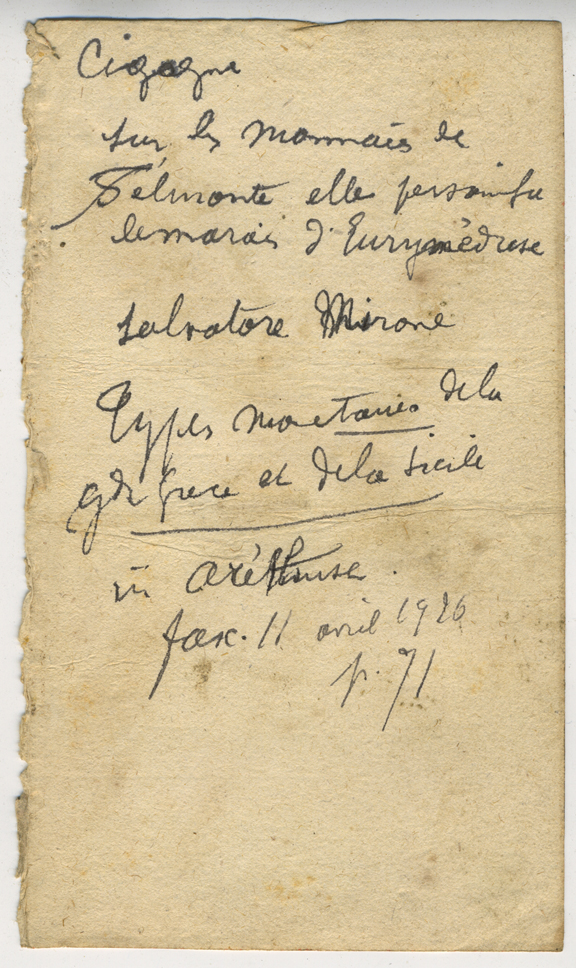 Cigogne
sur les monnaies de
Sélinonte elle personnifie
le marais d'Euryméduse
Salvatore Mirone
Types monetaires de la
gde Grece et de la Sicile
in Aréthuse.
fasc. 11 avril 1926
p. 71